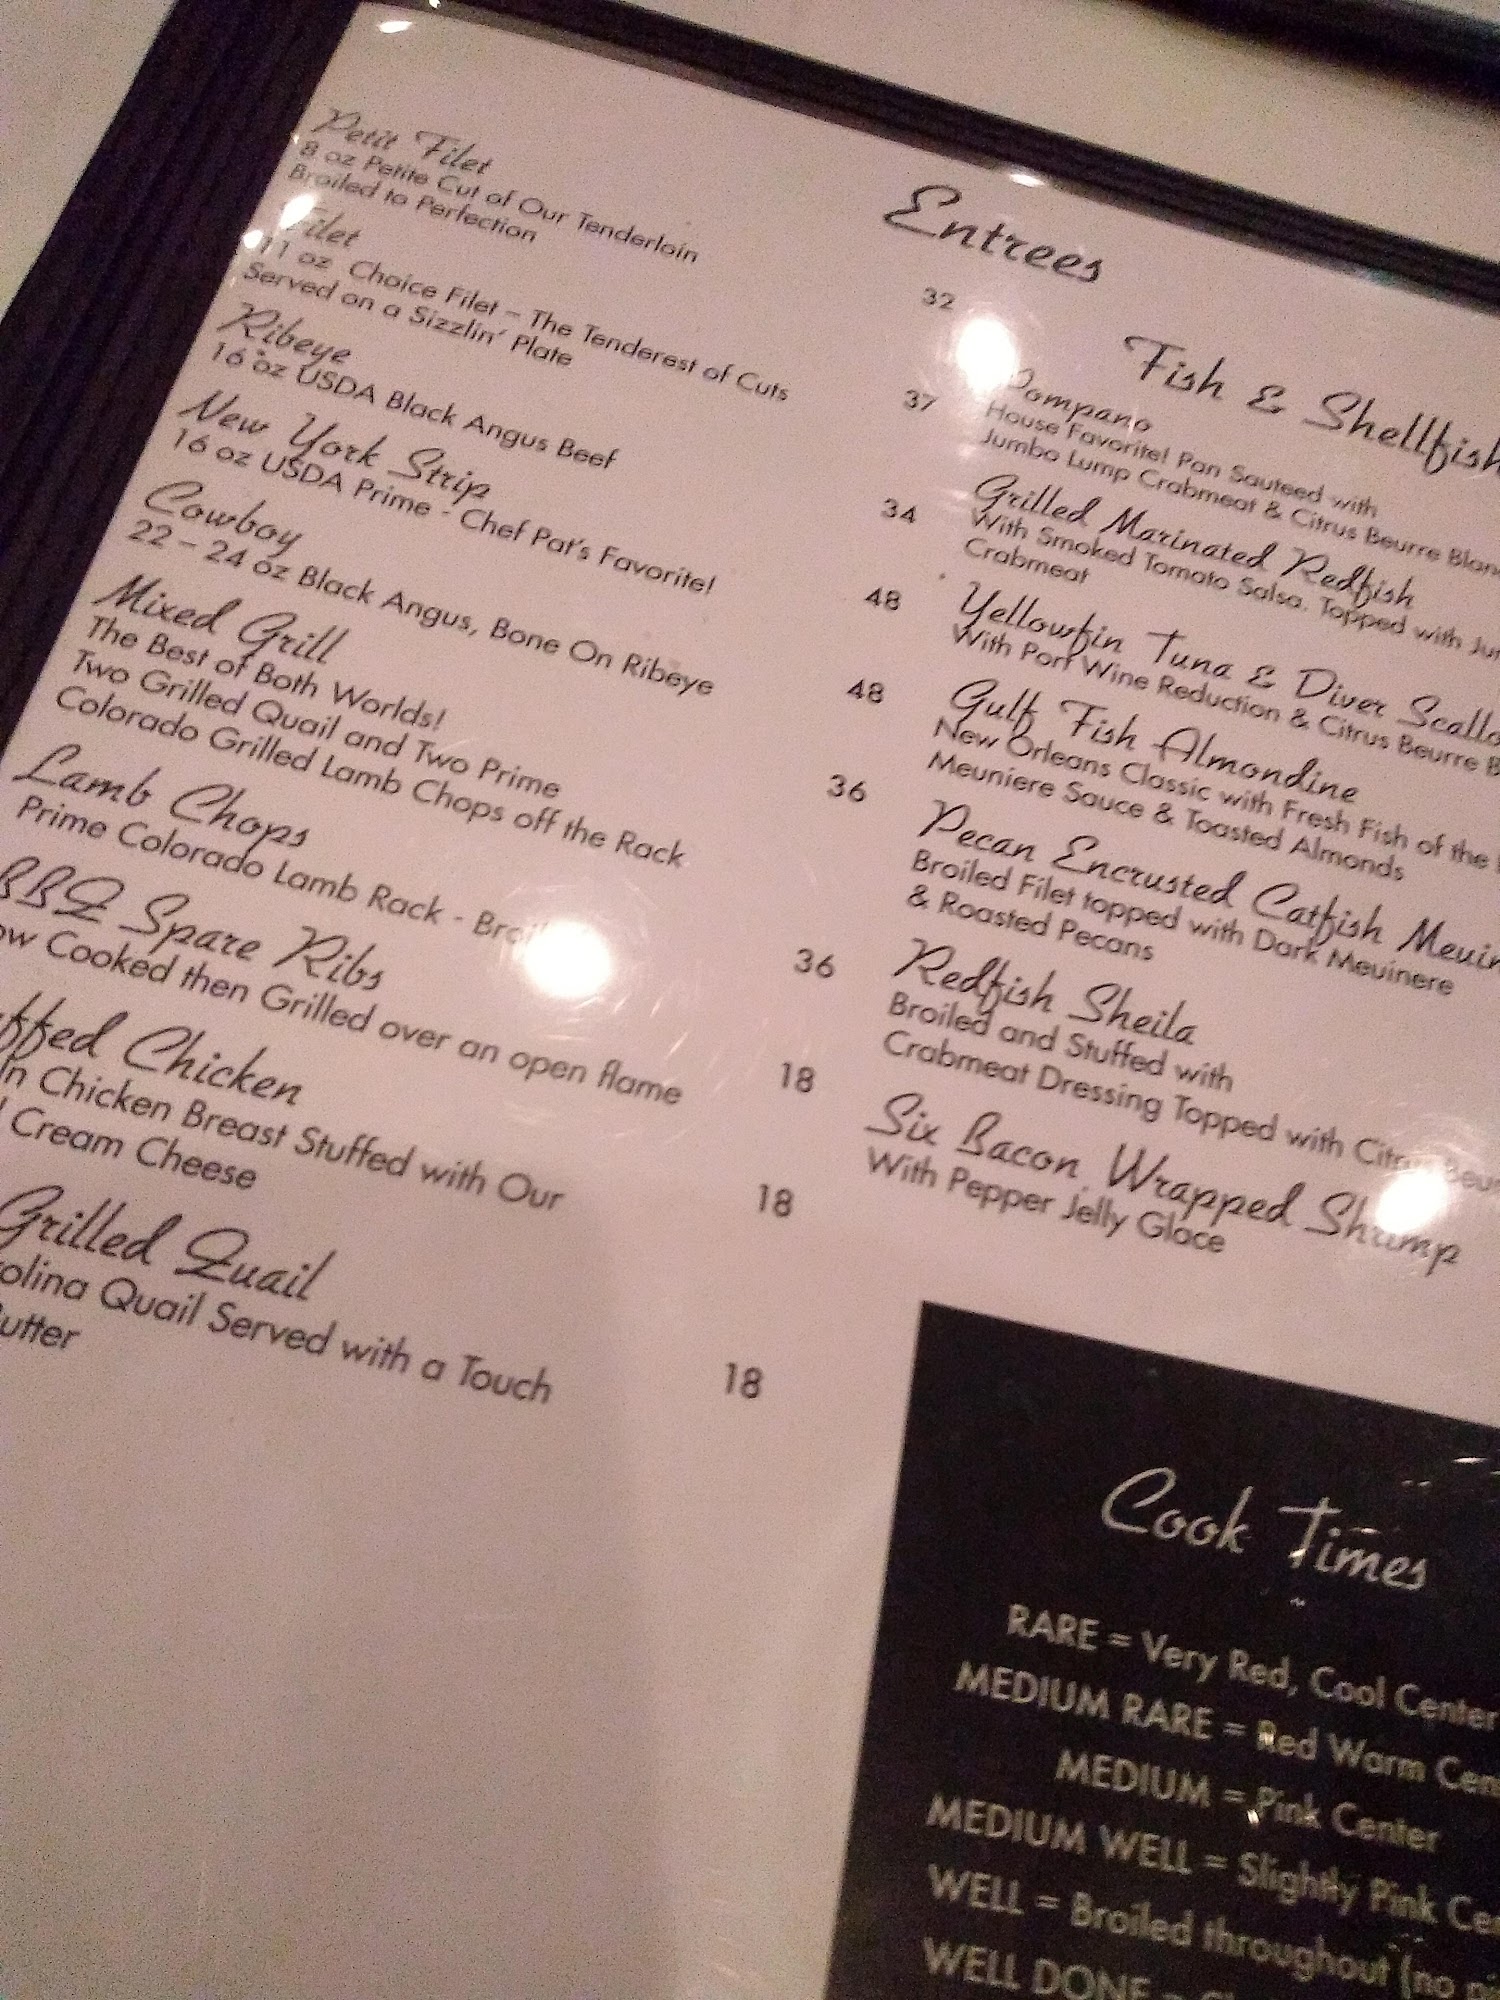 Entrees
Petit Filet
8 oz Petite Cut of Our Tenderloin
Broiled to Perfection
32
Filet
11 oz Choice Filet – The Tenderest of Cuts
Served on a Sizzlin' Plate
37
Ribeye
16 oz USDA Black Angus Beef
34
New York Strip
16 oz USDA Prime - Chef Pat's Favorite!
48
Cowboy
22 – 24 oz Black Angus, Bone On Ribeye
48
Mixed Grill
The Best of Both Worlds!
Two Grilled Quail and Two Prime
Colorado Grilled Lamb Chops off the Rack
36
Lamb Chops
Prime Colorado Lamb Rack -
36
BBQ Spare Ribs
Cooked then Grilled over an open flame
18
Chicken
Chicken Breast Stuffed with Our
Cream Cheese
18
Grilled Quail
Quail Served with a Touch
18
Fish & Shellfish
Pompano
House Favorite! Pan Sauteed with
Jumbo Lump Crabmeat & Citrus Beurre
Grilled Marinated Redfish
With Smoked Tomato Salsa. Topped with
Crabmeat
Yellowfin Tuna & Diver
With Port Wine Reduction & Citrus Beurre
Gulf Fish Almondine
New Orleans Classic with Fresh Fish of the
Meuniere Sauce & Toasted Almonds
Pecan Encrusted Catfish
Broiled Filet topped with Dark Meuinere
& Roasted Pecans
Redfish Sheila
Broiled and Stuffed with
Crabmeat Dressing Topped with Citrus
Six Bacon Wrapped Shrimp
With Pepper Jelly Glace
Cook Times
RARE = Very Red, Cool Center
MEDIUM RARE = Red Warm
MEDIUM = Pink Center
MEDIUM WELL = Slightly Pink
WELL = Broiled throughout (no
WELL DONE =